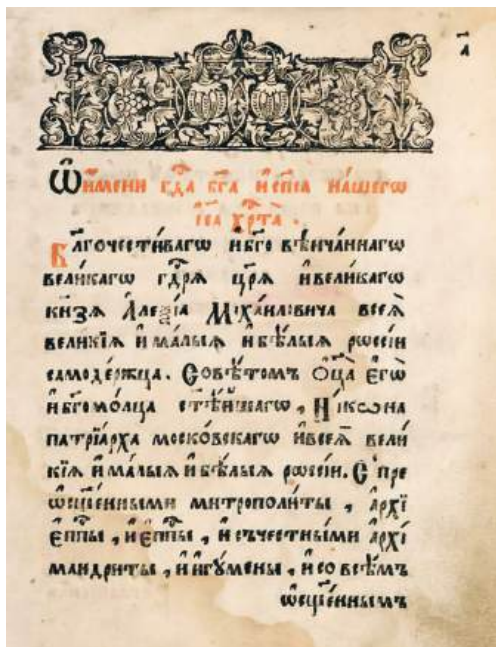 а҃
Ѡ҆ и҆́мени гдⷭ҇а бг҃а и҆ сп҃са на́шегѡ
і҆с҃а хрⷭ҇та̀ .
Бл҃гочести́вагѡ и҆ бг҃овѣнча́ннагѡ
вели́кагѡ гдⷭ҇рѧ цр҃ѧ и҆ вели́кагѡ
кн҃зѧ А҆леѯі́а Мїха́иловича всеѧ̀
вели́кїѧ и҆ ма́лыѧ и҆ бѣ́лыѧ рѡссі́и
самоде́ржца . Совѣ́томъ ѻ҆ц҃а̀ є҆гѡ̀
и҆ бг҃омо́лца ст҃ѣ́йшагѡ , Ні́кѡна
патрїа́рха моско́вскагѡ и҆ всеѧ̀ вели́
кїѧ и҆ ма́лыѧ и҆ бѣ́лыѧ рѡссі́и . С пре
ѡ҆сщ҃е́нными митрополи́ты , а҆рхї
є҆пⷭ҇пы , и҆ є҆пⷭ҇пы , и҆ съ честны́ми а҆рхї
мандри́ты , и҆ и҆гꙋ́мены , и҆ со всѣ́мъ
ѡ҆сщ҃е́ннымъ